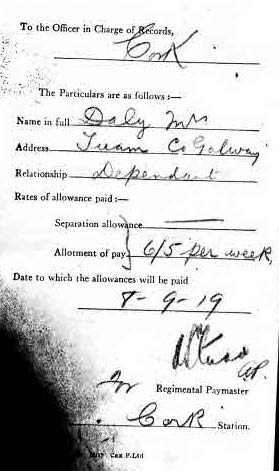 To the Officer in Charge of Records,
Cork
The Particulars are as follows :—
Name in full Daly Mrs
Address Tuam Co Galway
Relationship Dependant
Rates of allowance paid :—
Separation allowance ——
Allotment of pay 6/5 per week,
Date to which the allowances will be paid
8-9-19
for Regimental Paymaster
Cork Station.
Cox P.Ltd